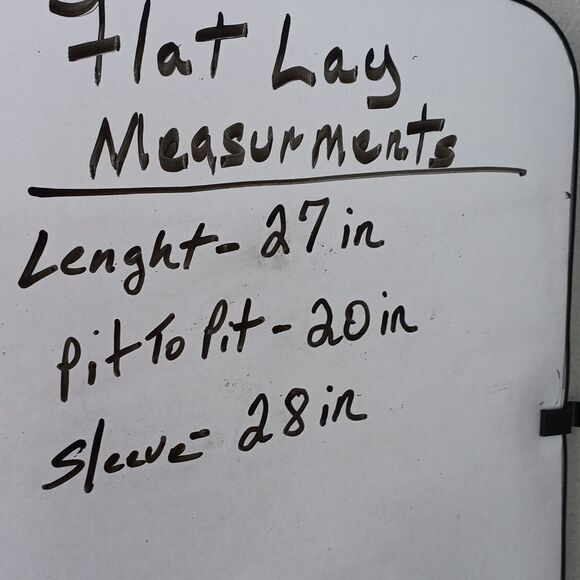 Flat Lay
Measurments
Lenght- 27 in
Pit To Pit - 20 in
Sleeve- 28 in